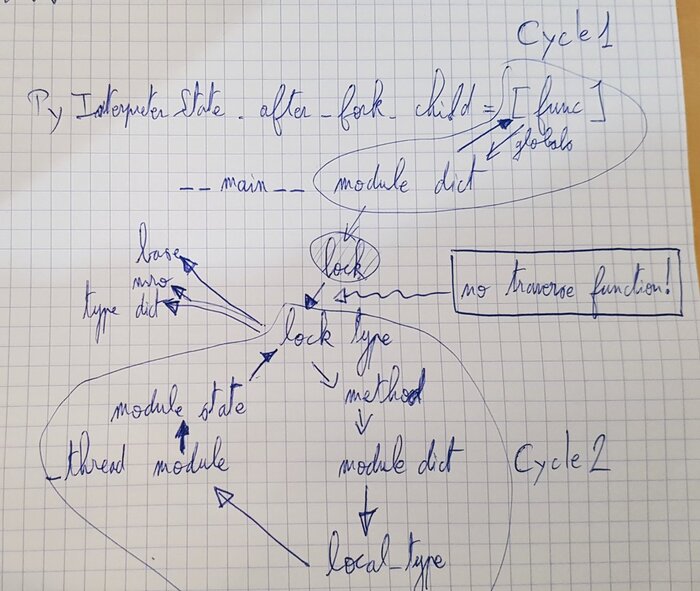 Cycle 1
Py Interpreter State . after _ fork _ child = [ func ]
globals
_ _ main _ _ module dict
base
mro
type dict
lock
no traverse function!
lock type
module state
method
_thread module
module dict
Cycle 2
local_type